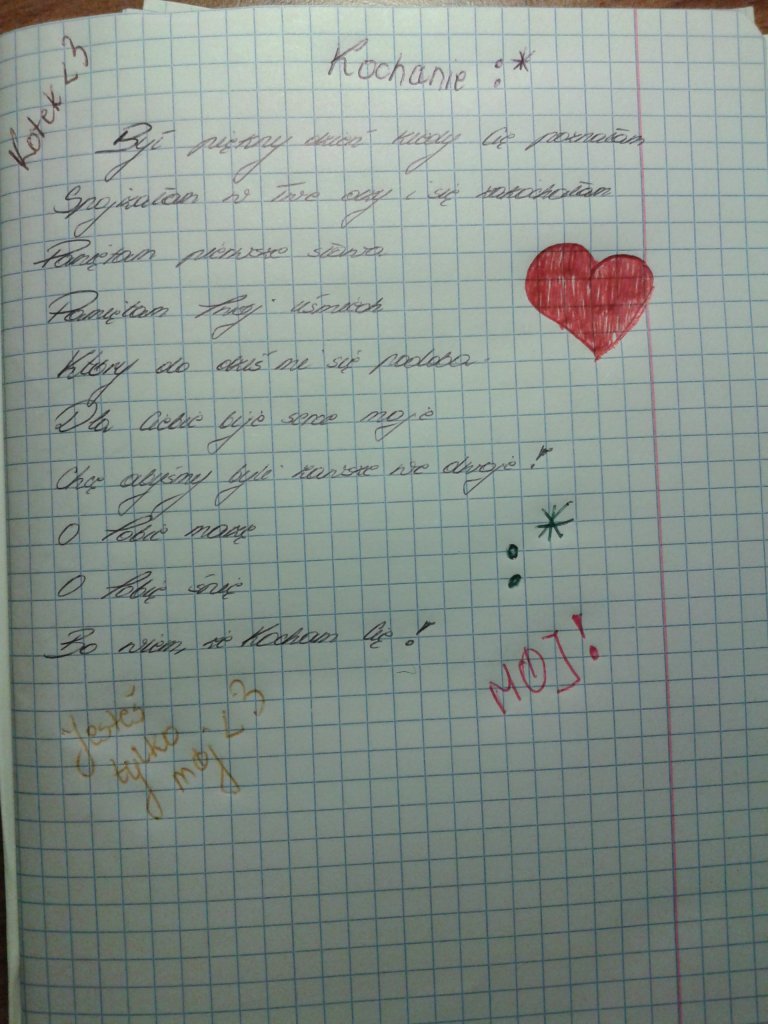 Kotek <3
Kochanie :*
Był piękny dzień kiedy Cię poznałam
Spojrzałam w Twe oczy i się zakochałam
Pamiętam pierwsze słowa
Pamiętam Twój uśmiech
Który do dziś mi się podoba.
Dla Ciebie bije serce moje
Chcę abyśmy byli zawsze we dwoje!
O Tobie marzę
O Tobie śnię
Bo wiem, że Kocham Cię!
:*
MÓJ!
Jesteś
tylko
mój <3